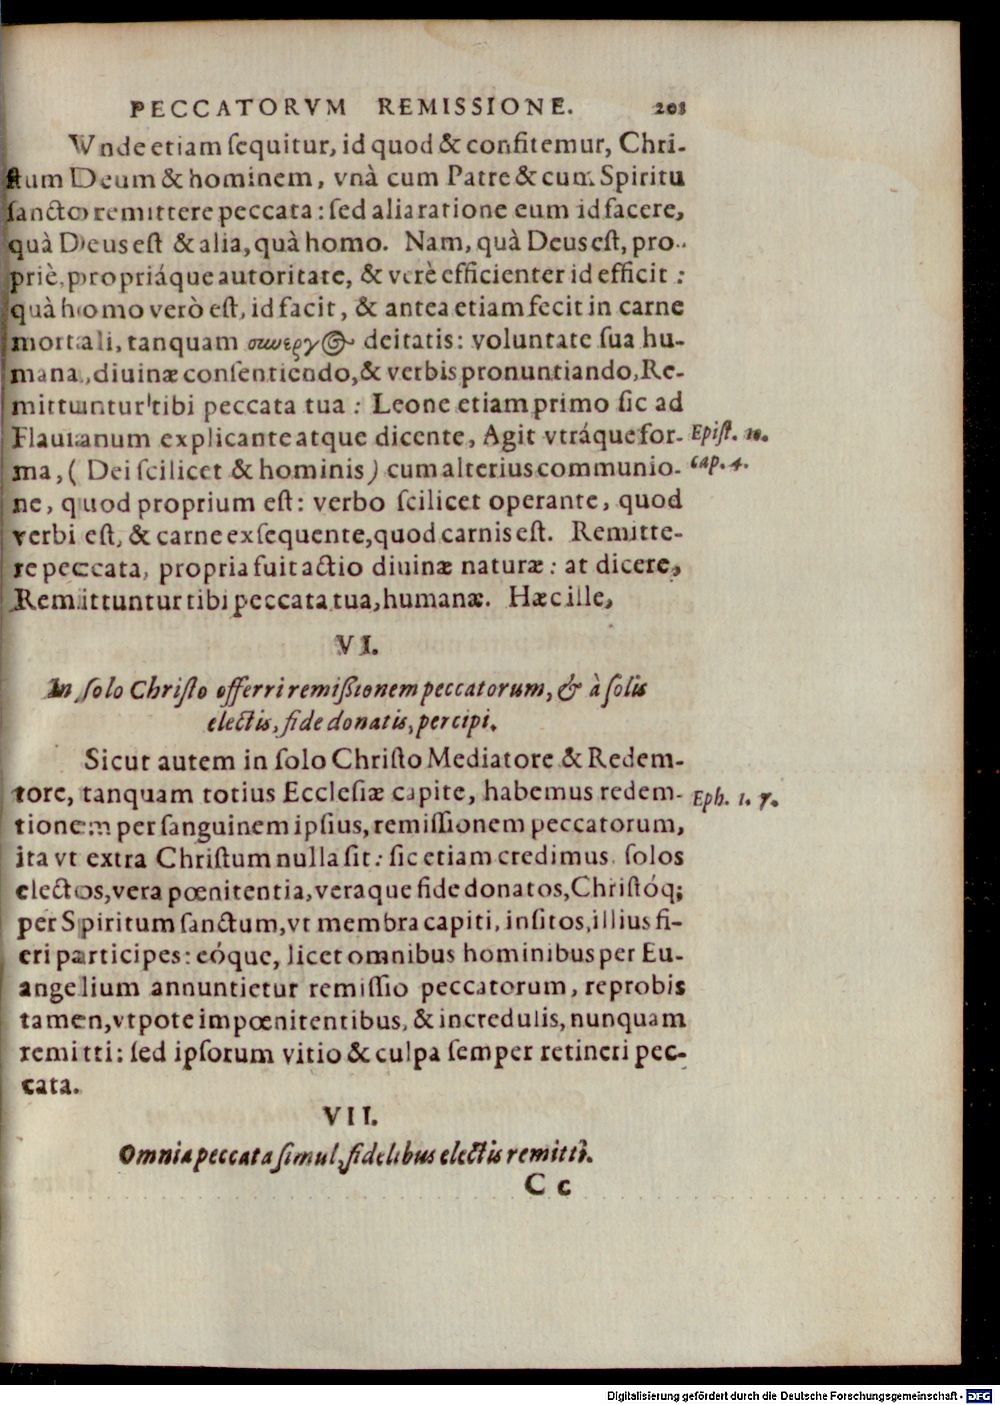 PECCATORVM REMISSIONE. 201
Vnde etiam ſequitur, id quod & confitemur, Chri-
ſtum Deum & hominem, vnà cum Patre & cum Spiritu
ſancto remittere peccata: ſed alia ratione eum id facere,
quà Deus eſt & alia, quà homo. Nam, quà Deus eſt, pro-
priè, propriáque autoritate, & verè efficienter id efficit:
quà homo verò eſt, id facit, & antea etiam fecit in carne
mortali, tanquam συνεργὸς deitatis: voluntate ſua hu-
mana, diuinæ conſentiendo, & verbis pronuntiando, Re-
mittuntur tibi peccata tua: Leone etiam primo ſic ad
Flauianum explicante atque dicente, Agit vtráque for- Epiſt. 10.
ma, (Dei ſcilicet & hominis) cum alterius communio- cap. 4.
ne, quod proprium eſt: verbo ſcilicet operante, quod
verbi eſt, & carne exſequente, quod carnis eſt. Remitte-
re peccata, propria fuit actio diuinæ naturæ: at dicere,
Remittuntur tibi peccata tua, humanæ. Hæc ille,
VI.
In ſolo Chriſto offerri remißionem peccatorum, & à ſolis
electis, fide donatis, percipi.
Sicut autem in ſolo Chriſto Mediatore & Redem-
tore, tanquam totius Eccleſiæ capite, habemus redem- Eph. 1. 7.
tionem per ſanguinem ipſius, remiſſionem peccatorum,
ita vt extra Chriſtum nulla ſit: ſic etiam credimus ſolos
electos, vera pœnitentia, veraque fide donatos, Chriſtóq;
per Spiritum ſanctum, vt membra capiti, inſitos, illius fi-
eri participes: eóque, licet omnibus hominibus per Eu-
angelium annuntietur remiſſio peccatorum, reprobis
tamen, vtpote impœnitentibus, & incredulis, nunquam
remitti: ſed ipſorum vitio & culpa ſemper retineri pec-
cata.
VII.
Omnia peccata ſimul, fidelibus electis remitti.
C c
Digitalisierung gefördert durch die Deutsche Forschungsgemeinschaft - DFG